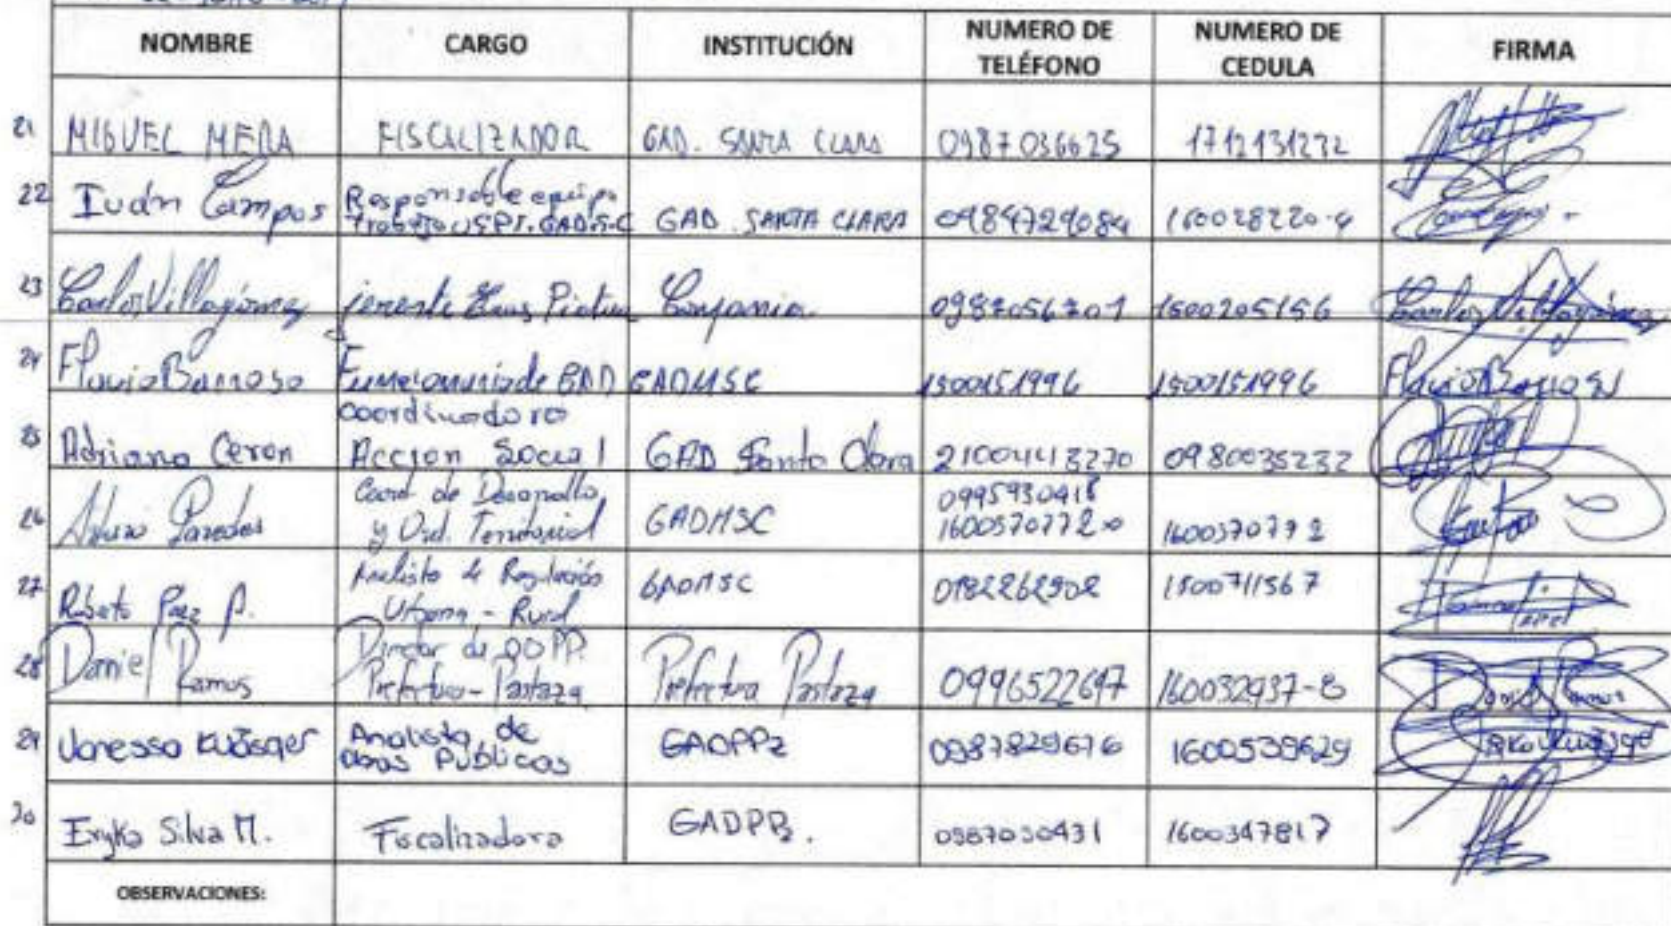 NOMBRE CARGO INSTITUCIÓN NUMERO DE TELÉFONO NUMERO DE CEDULA FIRMA
21 MIGUEL MERA FISCALIZADOR GAD. SANTA CLARA 0987036625 1712131232
22 Iván Campos Responsable equipo
trabajo USPS.GADMSC GAD. SANTA CLARA 0984729084 160028220-4
23 Carlos Villagómez jerente Piatua Conpania 0987056701 1600205156 Carlos Villagómez
24 Flavio Barroso Funcionario de GAD GADMSC 1500151996 1500151996 Flavio Barroso
25 Adriana Ceron coordinadora
Accion Social GAD Santa Clara 21004413270 0980035232
26 Paredes Coord de Desarrollo
y Ord. Territorial GADMSC 0995930418
1600370772 1600370792
27 Roberto Paez P. Analista de Regulación
Urbana - Rural GADMSC 0982262902 1500711567
28 Daniel Ramos Director de OOPP.
Prefectura - Pastaza Prefectura Pastaza 0996522647 160032937-8
29 Vanessa Analista de
Obras Públicas GADPPz 0987829676 1600539629
30 Eryka Silva M. Fiscalizadora GADPPz. 0987030431 1600347817
OBSERVACIONES: